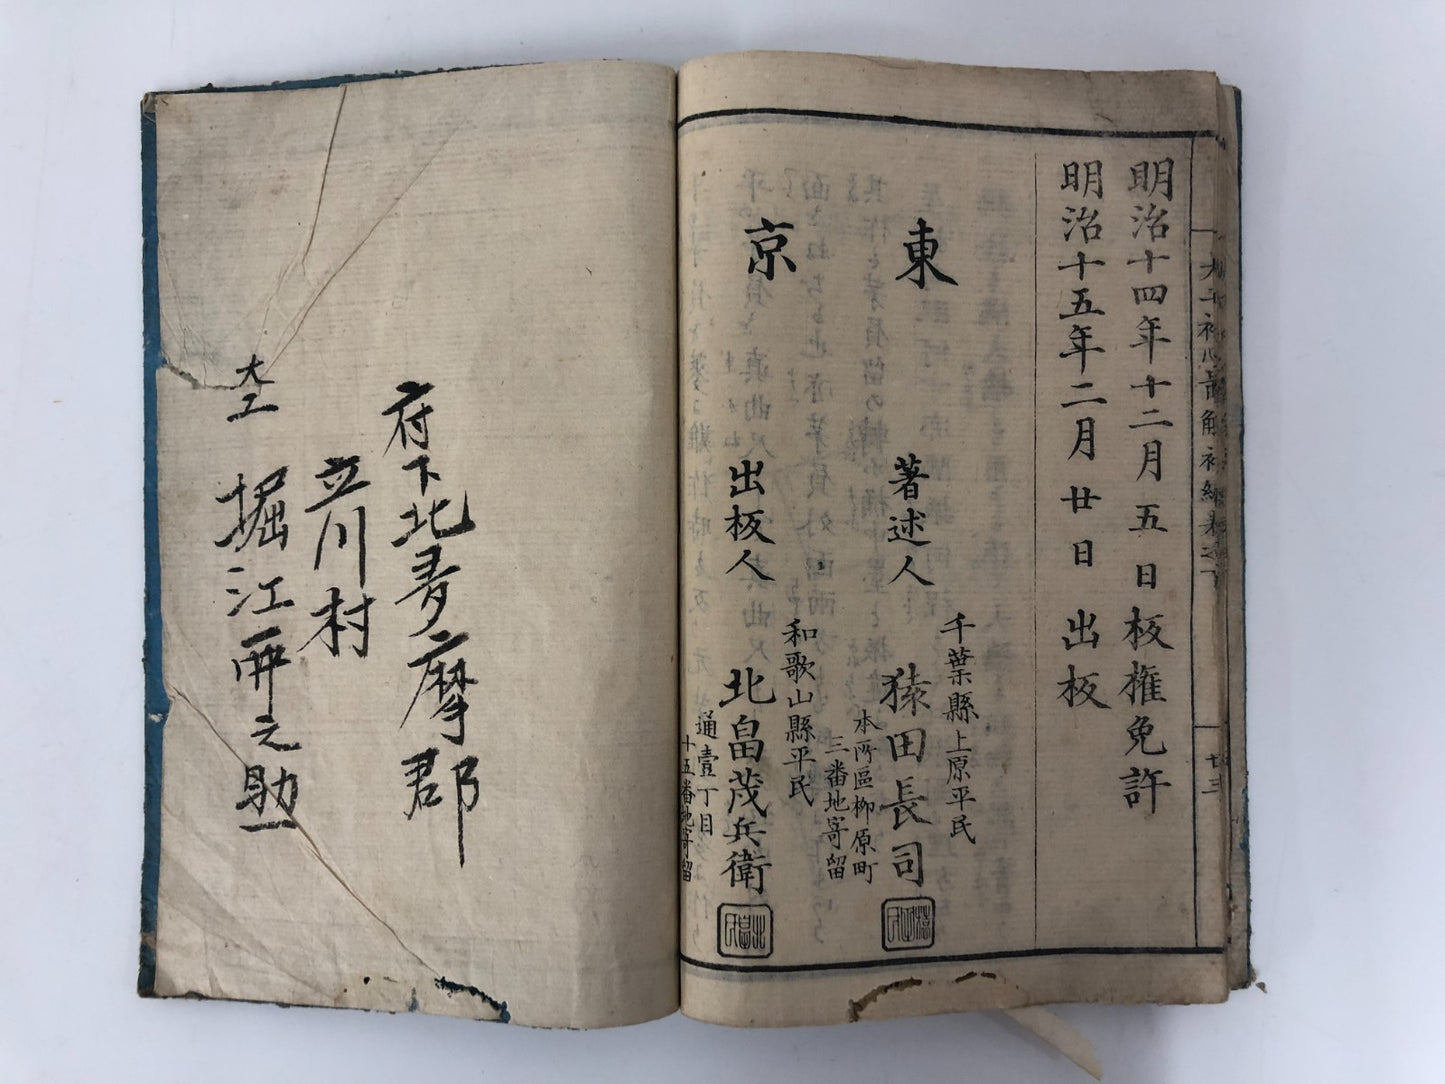 大工初心図解初編巻之下
廿三
明治十四年十二月五日板権免許
明治十五年二月廿日出板
東京
千葉縣上原平民
著述人 猿田長司
本所區柳原町
三番地寄留
和歌山縣平民
出板人 北畠茂兵衛
通壹丁目
十五番地寄留
府下北多摩郡
立川村
大工 堀江
之助